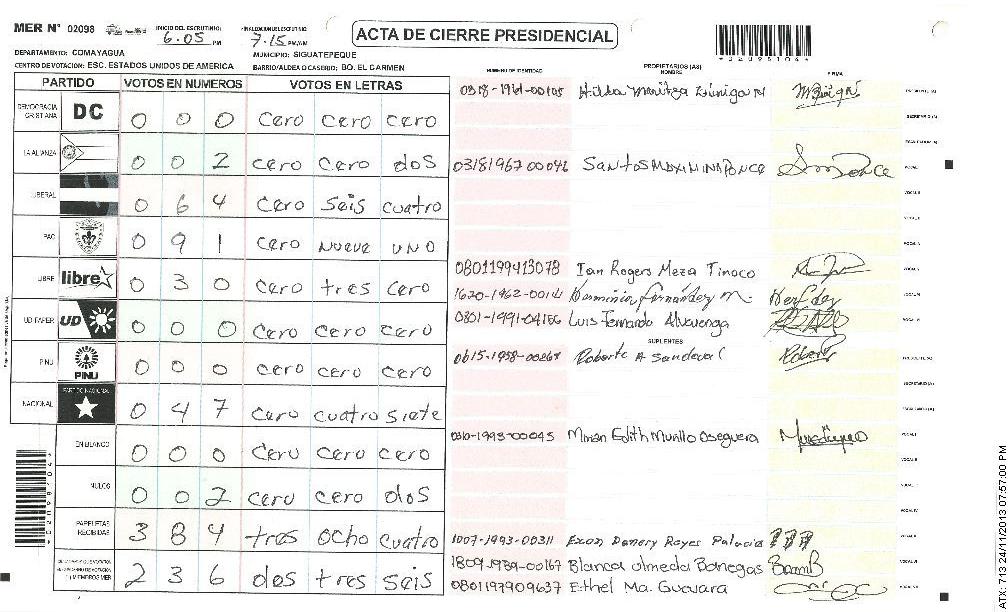 MER N° 02098
INICIO DEL ESCRUTINIO: 6.05 PM
7.15 PM/AM
ACTA DE CIERRE PRESIDENCIAL
DEPARTAMENTO: COMAYAGUA
MUNICIPIO: SIGUATEPEQUE
CENTRO DE VOTACION: ESC. ESTADOS UNIDOS DE AMERICA
BARRIO/ALDEA O CASERIO: BO. EL CARMEN
PARTIDO VOTOS EN NUMEROS VOTOS EN LETRAS
NUMERO DE IDENTIDAD PROPIETARIOS (AS) NOMBRE FIRMA
DEMOCRACIA CRISTIANA DC 0 0 0 cero cero cero
LA ALIANZA 0 0 2 cero cero dos
LIBERAL 0 6 4 cero seis cuatro
PAC 0 9 1 cero nueve uno
LIBRE libre 0 3 0 cero tres cero
UD FAPER UD 0 0 0 cero cero cero
PINU PINU 0 0 0 cero cero cero
NACIONAL PARTIDO NACIONAL 0 4 7 cero cuatro siete
EN BLANCO 0 0 0 cero cero cero
NULOS 0 0 2 cero cero dos
PAPELETAS RECIBIDAS 3 8 4 tres ocho cuatro
2 3 6 dos tres seis
0318-1961-00105 Hilda Maritza Zúniga M
0318196700046 SANTOS MAXIMINA PONCE
0801199413078 Ian Rogers Meza Tinoco
Herminia fernández m.
0801-1991-04186 Luis Fernando Alvarenga
SUPLENTES
0615-1958-00268 Roberto A Sandoval
1993-00045 Miriam Edith Murillo Oseguera
1007-1993-00311 Reyes Palacios
1809-1989-00167 Blanca Almeda Banegas
0801197909637 Ethel Ma. Guevara
ATX: 713 24/11/2013 07:57:00 PM